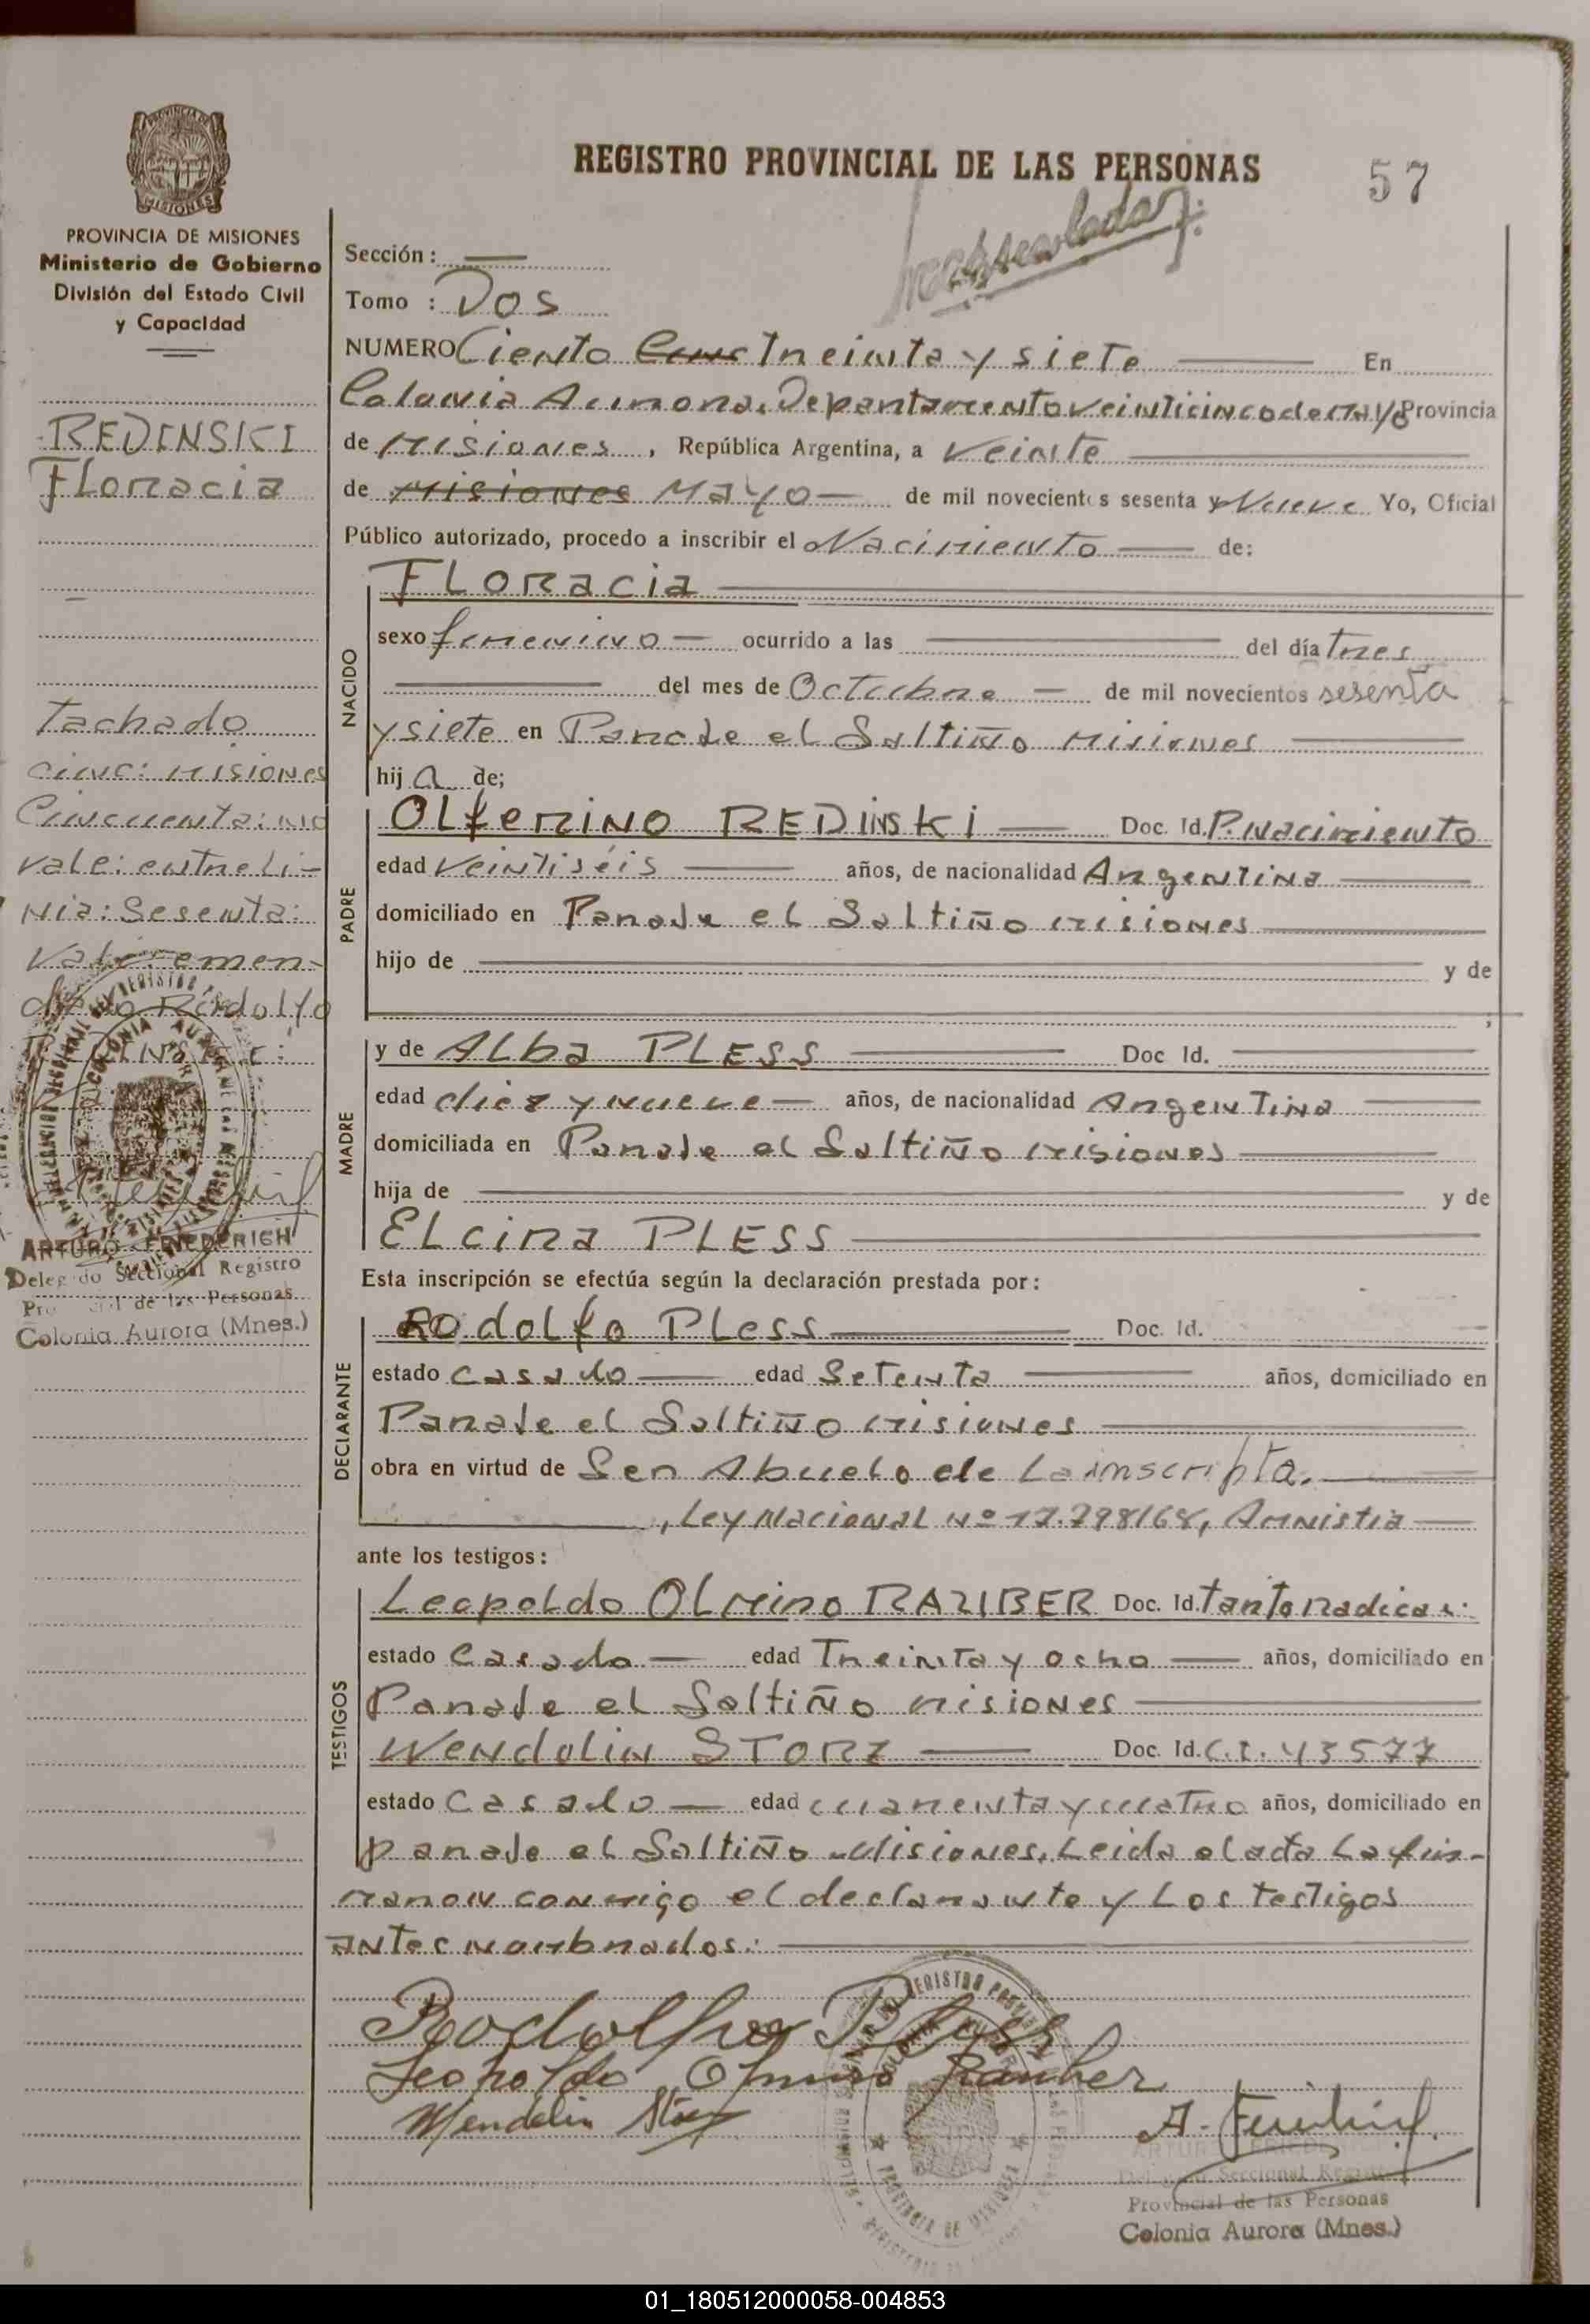 REGISTRO PROVINCIAL DE LAS PERSONAS
57
PROVINCIA DE MISIONES
Ministerio de Gobierno
División del Estado Civil
y Capacidad
REDINSKI
Floracia
Tachado
cinc: misiones
Cincuenta: no
vale: entre li-
nia: Sesenta:
Vale: enmen-
dado Rodolfo
ARTURO FRIEDERICH
Delegado Seccional Registro
Provincial de las Personas
Colonia Aurora (Mnes.)
Sección: —
Tomo : Dos
NUMERO Ciento Cinc Treinta y siete — En
Colonia Aurora, Departamento veinticinco de Mayo Provincia
de Misiones, República Argentina, a Veinte —
de Misiones Mayo — de mil novecientos sesenta y Nueve Yo, Oficial
Público autorizado, procedo a inscribir el Nacimiento — de:
NACIDO
FLORacia —
sexo femenino — ocurrido a las — del día Tres
— del mes de Octubre — de mil novecientos sesenta
y siete en Paraje el Saltiño Misiones —
hij a de;
PADRE
OLferino REDINSKi — Doc. Id. P. Nacimiento
edad Veintiséis — años, de nacionalidad Argentina —
domiciliado en Paraje el Saltiño Misiones —
hijo de — y de
— ;
MADRE
y de ALba PLESS — Doc Id. —
edad diez y nueve — años, de nacionalidad Argentina —
domiciliada en Paraje el Saltiño Misiones —
hija de — y de
ELcira PLESS —
Esta inscripción se efectúa según la declaración prestada por:
DECLARANTE
Rodolfo PLess — Doc. Id.
estado Casado — edad Setenta — años, domiciliado en
Paraje el Saltiño Misiones —
obra en virtud de Ser Abuelo de La inscripta. —
, Ley Nacional Nº 17.798/68, Amnistia —
ante los testigos:
TESTIGOS
Leopoldo OLmiro RAUBER Doc. Id. Tanto Radica:
estado Casado — edad Treinta y ocho — años, domiciliado en
Paraje el Saltiño Misiones —
Wendolin STORZ — Doc. Id. C.I. 43577
estado Casado — edad cuarenta y cuatro años, domiciliado en
paraje el Saltiño Misiones. Leida el acta La fir-
maron conmigo el declarante y Los testigos
antes nombrados: —
Rodolfo Pless
Leopoldo Olmiro Rauber
Wendelin Storz
A. Friederich
ARTURO FRIEDERICH
Delegado Seccional Registro
Provincial de las Personas
Colonia Aurora (Mnes.)
01_180512000058-004853